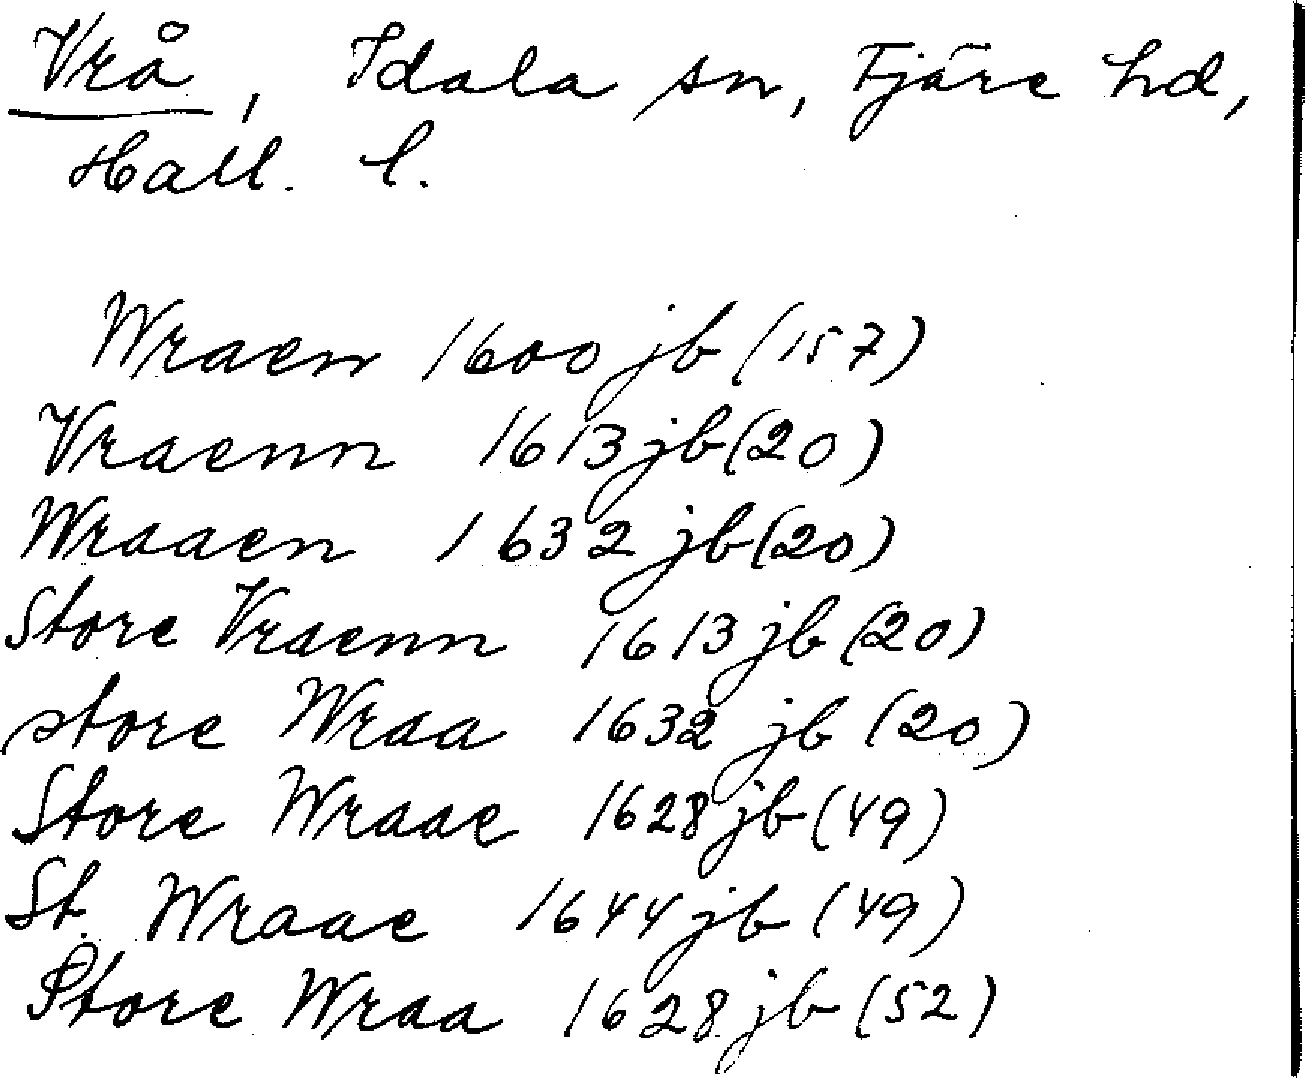 Vrå, Idala sn, Fjäre hd,
Hall. l.
Wraen 1600 jb (157)
Vraenn 1613 jb (20)
Wraaen 1632 jb (20)
Store Vraenn 1613 jb (20)
store Wraa 1632 jb (20)
Store Wraae 1628 jb (49)
St. Wraae 1644 jb (49)
Store Wraa 1628 jb (52)